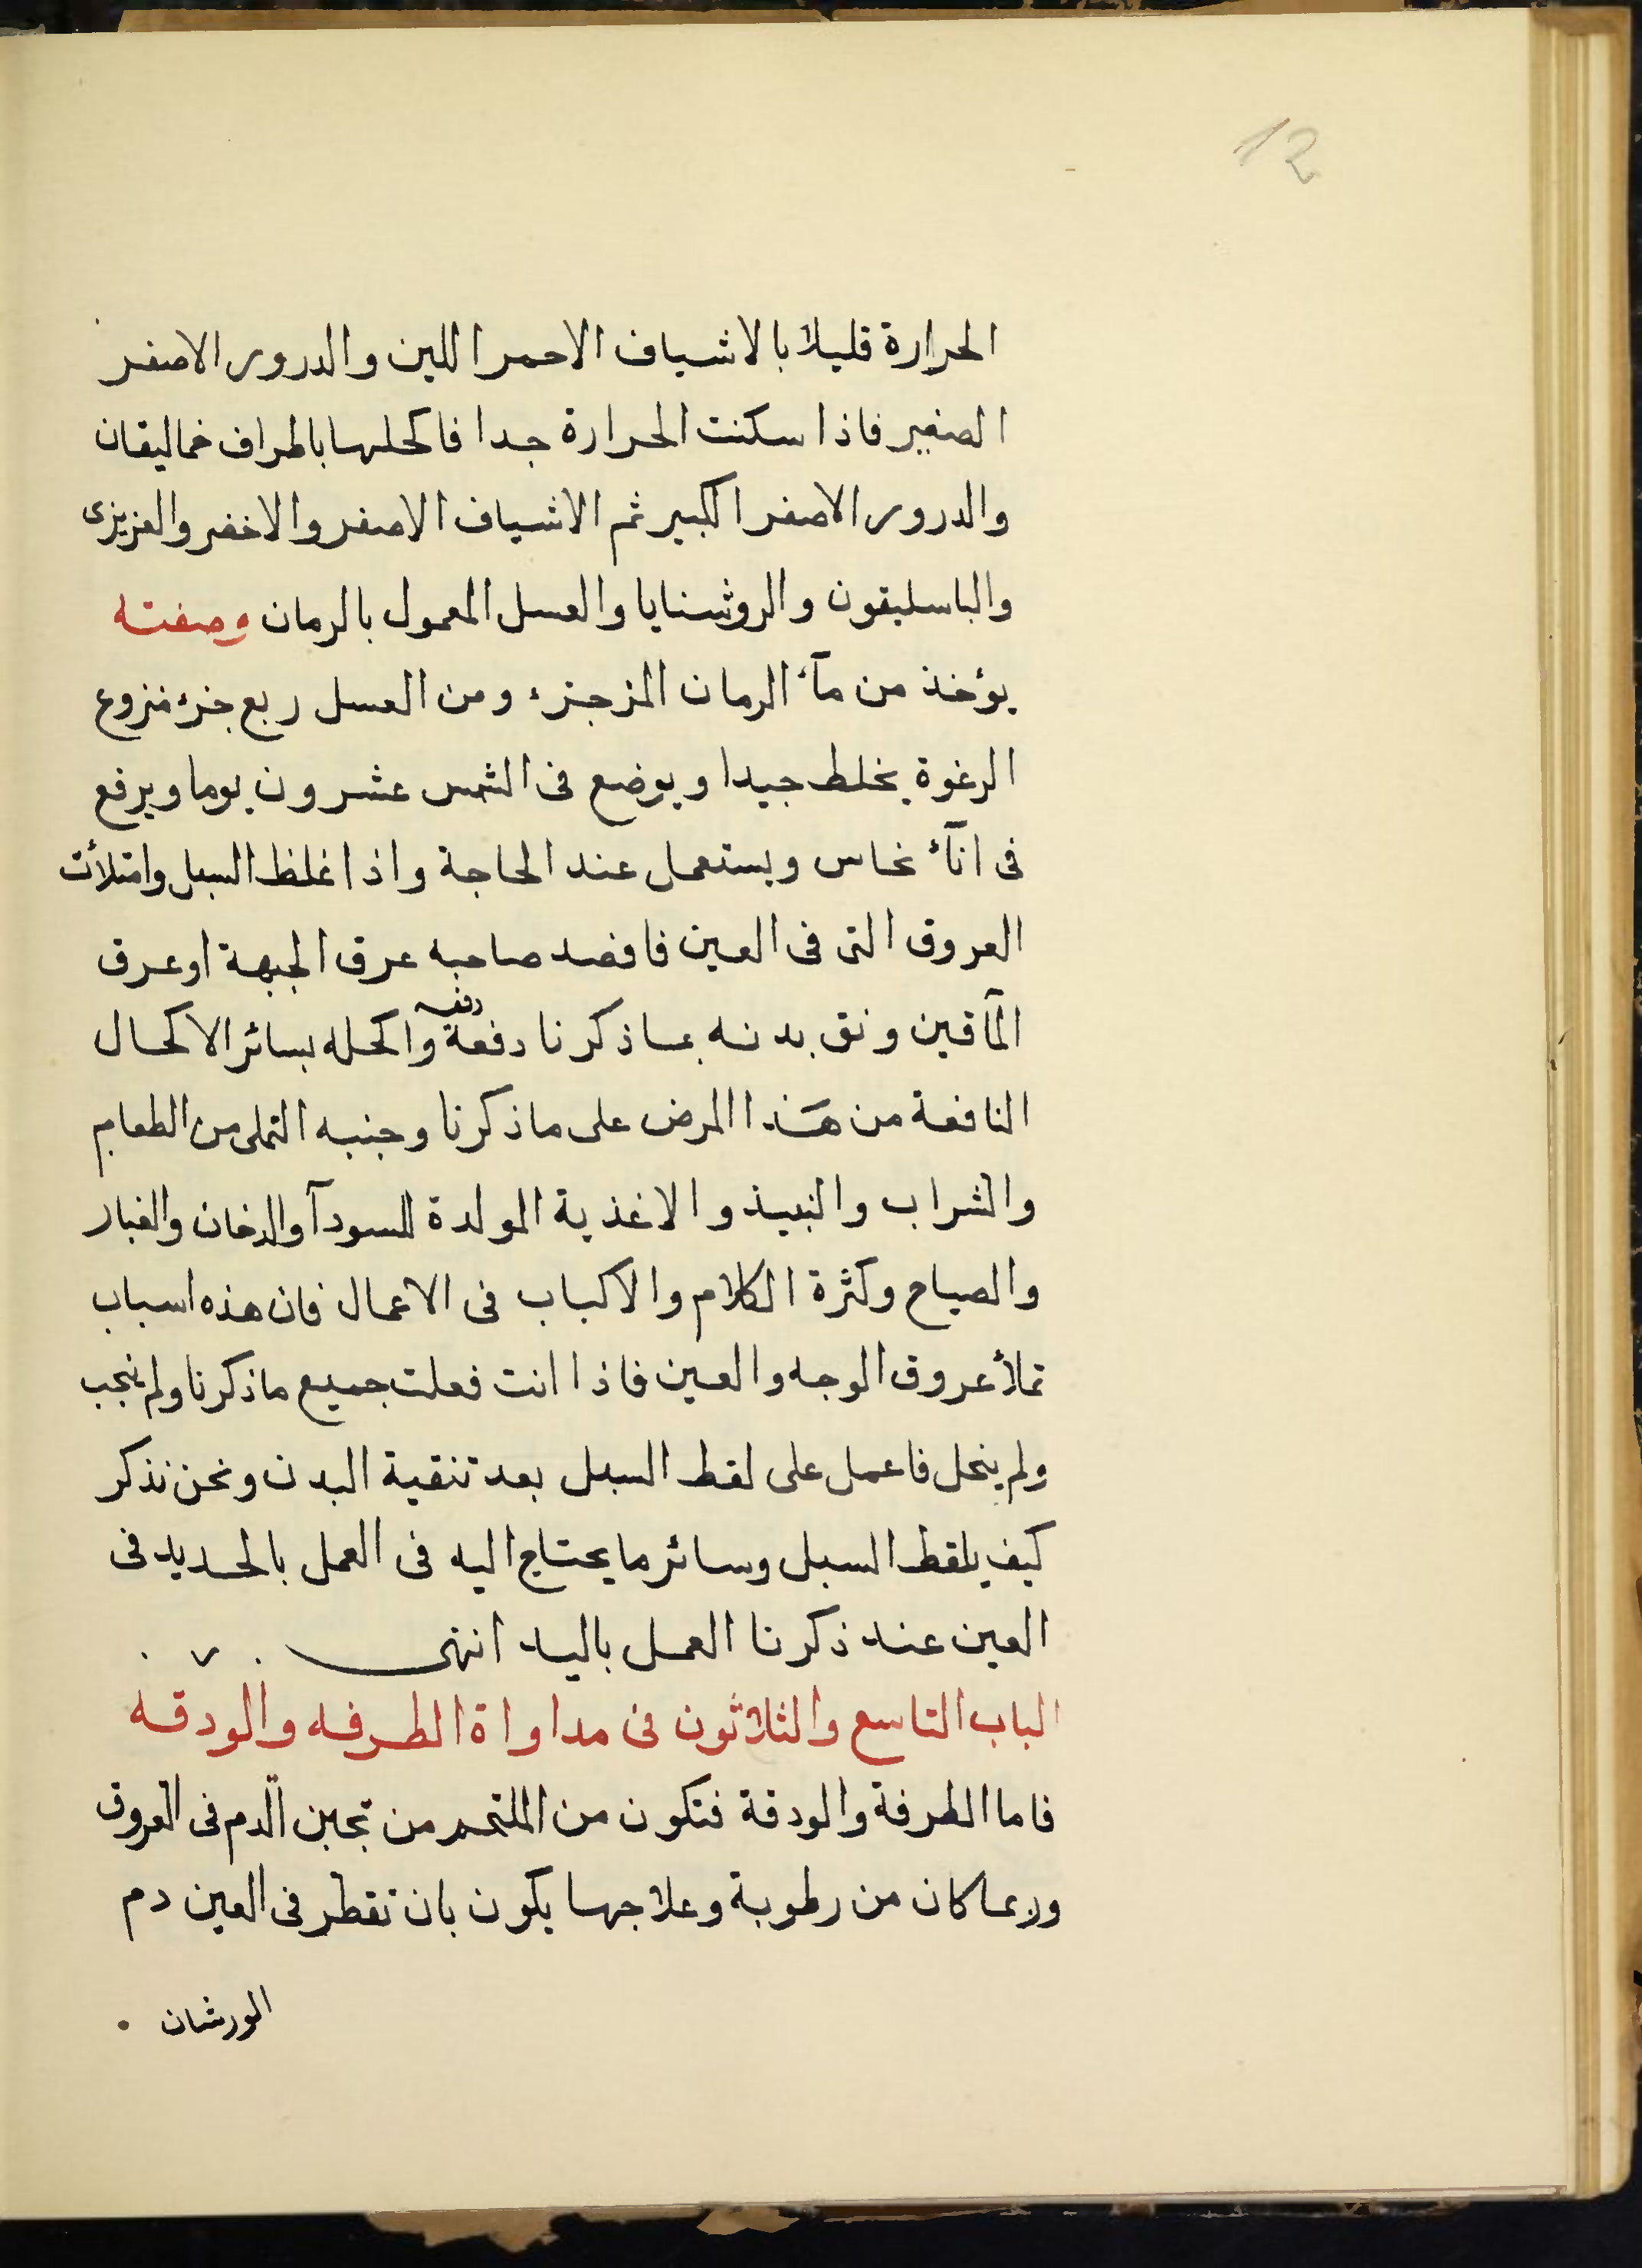 12
الحرارة قليلا بالاشياف الاحمر اللين والدرور الاصفر
الصغير فاذا سكنت الحرارة جدا فاكحلها باطراف خماليقان
والدرور الاصفر الكبير ثم الاشياف الاصفر والاخضر والعزيزى
والباسليقون والروشنايا والعسل المعمول بالرمان وصفته
يؤخذ من مآء الرمان المز جزء ومن العسل ربع جزء منزوع
الرغوة يخلط جيدا ويوضع فى الشمس عشرون يوما ويرفع
فى انآء نحاس ويستعمل عند الحاجة واذا غلظ السبل وامتلأت
العروق التى فى العين فافصد صاحبه عرق الجبهة او عرق
المآقين ونق بدنه بماذكرنا دفعة دفعه واكحله بسائر الاكحال
النافعة من هذا المرض على ماذكرنا وجنبه التملى من الطعام
والشراب والنبيذ والاغذية المولدة للسودآ والدخان والغبار
والصياح وكثرة الكلام والاكباب فى الاعمال فان هذه اسباب
تملأ عروق الوجه والعين فاذا انت فعلت جميع ماذكرنا ولم ينجب
ولم ينحل فاعمل على لقط السبل بعد تنقية البدن ونحن نذكر
كيف يلقط السبل وسائر ما يحتاج اليه فى العمل بالحديد فى
العين عند ذكرنا العمل باليد انتهى
الباب التاسع والثلاثون فى مداواة الطرفه والودقه
فاما الطرفة والودقة فتكون من الملتحم من تجبن الدم فى العروق
وربما كان من رطوبة وعلاجها يكون بان تقطر فى العين دم
الورشان